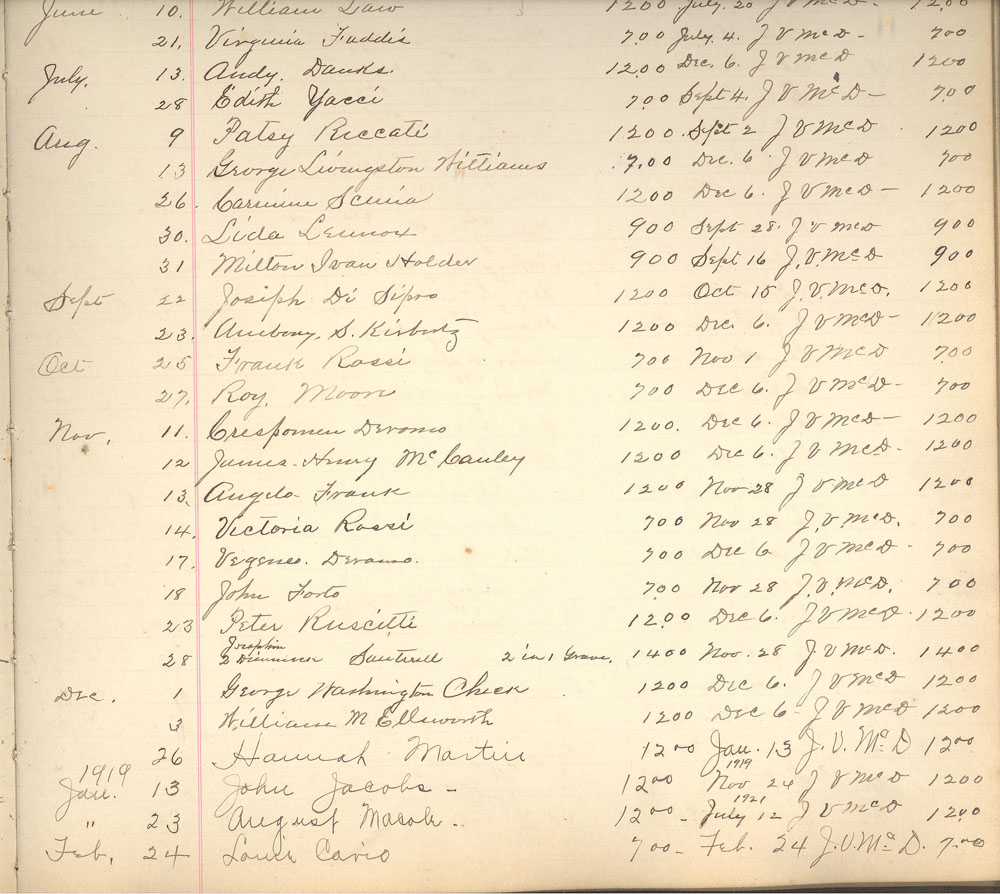 June 10. William Law 1200 July. 20 J V McD- 1200
21. Virginia Faddis 700 July. 4. J V McD- 700
July. 13. Andy. Danks. 1200 Dec. 6. J V McD 1200
28 Edith Yacci 700 Sept 4. J V McD- 700
Aug. 9 Patsy Riccati 1200. Sept 2 J V McD 1200
13 George Livingston Williams 7.00 Dec. 6 J V McD 700
26. Carmine Scinia 1200 Dec 6. J V McD- 1200
30. Lida Lennox 900 Sept 28. J V McD 900
31 Milton Ivan Holder 900 Sept 16 J.V.McD 900
Sept 22 Josiph Di Sipio 1200 Oct 15 J.V.McD. 1200
23. S. 1200 Dec. 6. J V McD- 1200
Oct 25 Frank Rossi 700 Nov 1 J V McD 700
27. Roy. Moon 700 Dec 6. J V McD- 700
Nov. 11. Devono 1200. Dec 6. J V McD- 1200
12 James. Henry McCauley 1200 Dec 6. J V McD- 1200
13. Angelo Frank 1200 Nov 28 J V McD 1200
14. Victoria Rossi 700 Nov 28 J.V.McD. 700
17. Devono. 700 Dec 6 J V McD- 700
18 John Forto 700 Nov 28 J.V.McD. 700
23 Peter Ruscitti 1200 Dec 6. J V McD. 1200
Josephin
28 2 2 in 1 Grave. 1400 Nov. 28 J V McD. 1400
Dec. 1 George Washington Check 1200 Dec 6. J V McD 1200
3 William M Ellsworth 1200 Dec 6- J V McD 1200
26 Hannah Martin 1200 Jan. 13 J.V.McD 1200
1919 1919
Jan. 13 John Jacobs- 1200 Nov 24 J V McD 1200
1921
" 23 August Masok. 1200- July 12 J V McD 1200
Feb. 24 Louis Cario 700- Feb. 24 J.V.McD. 700